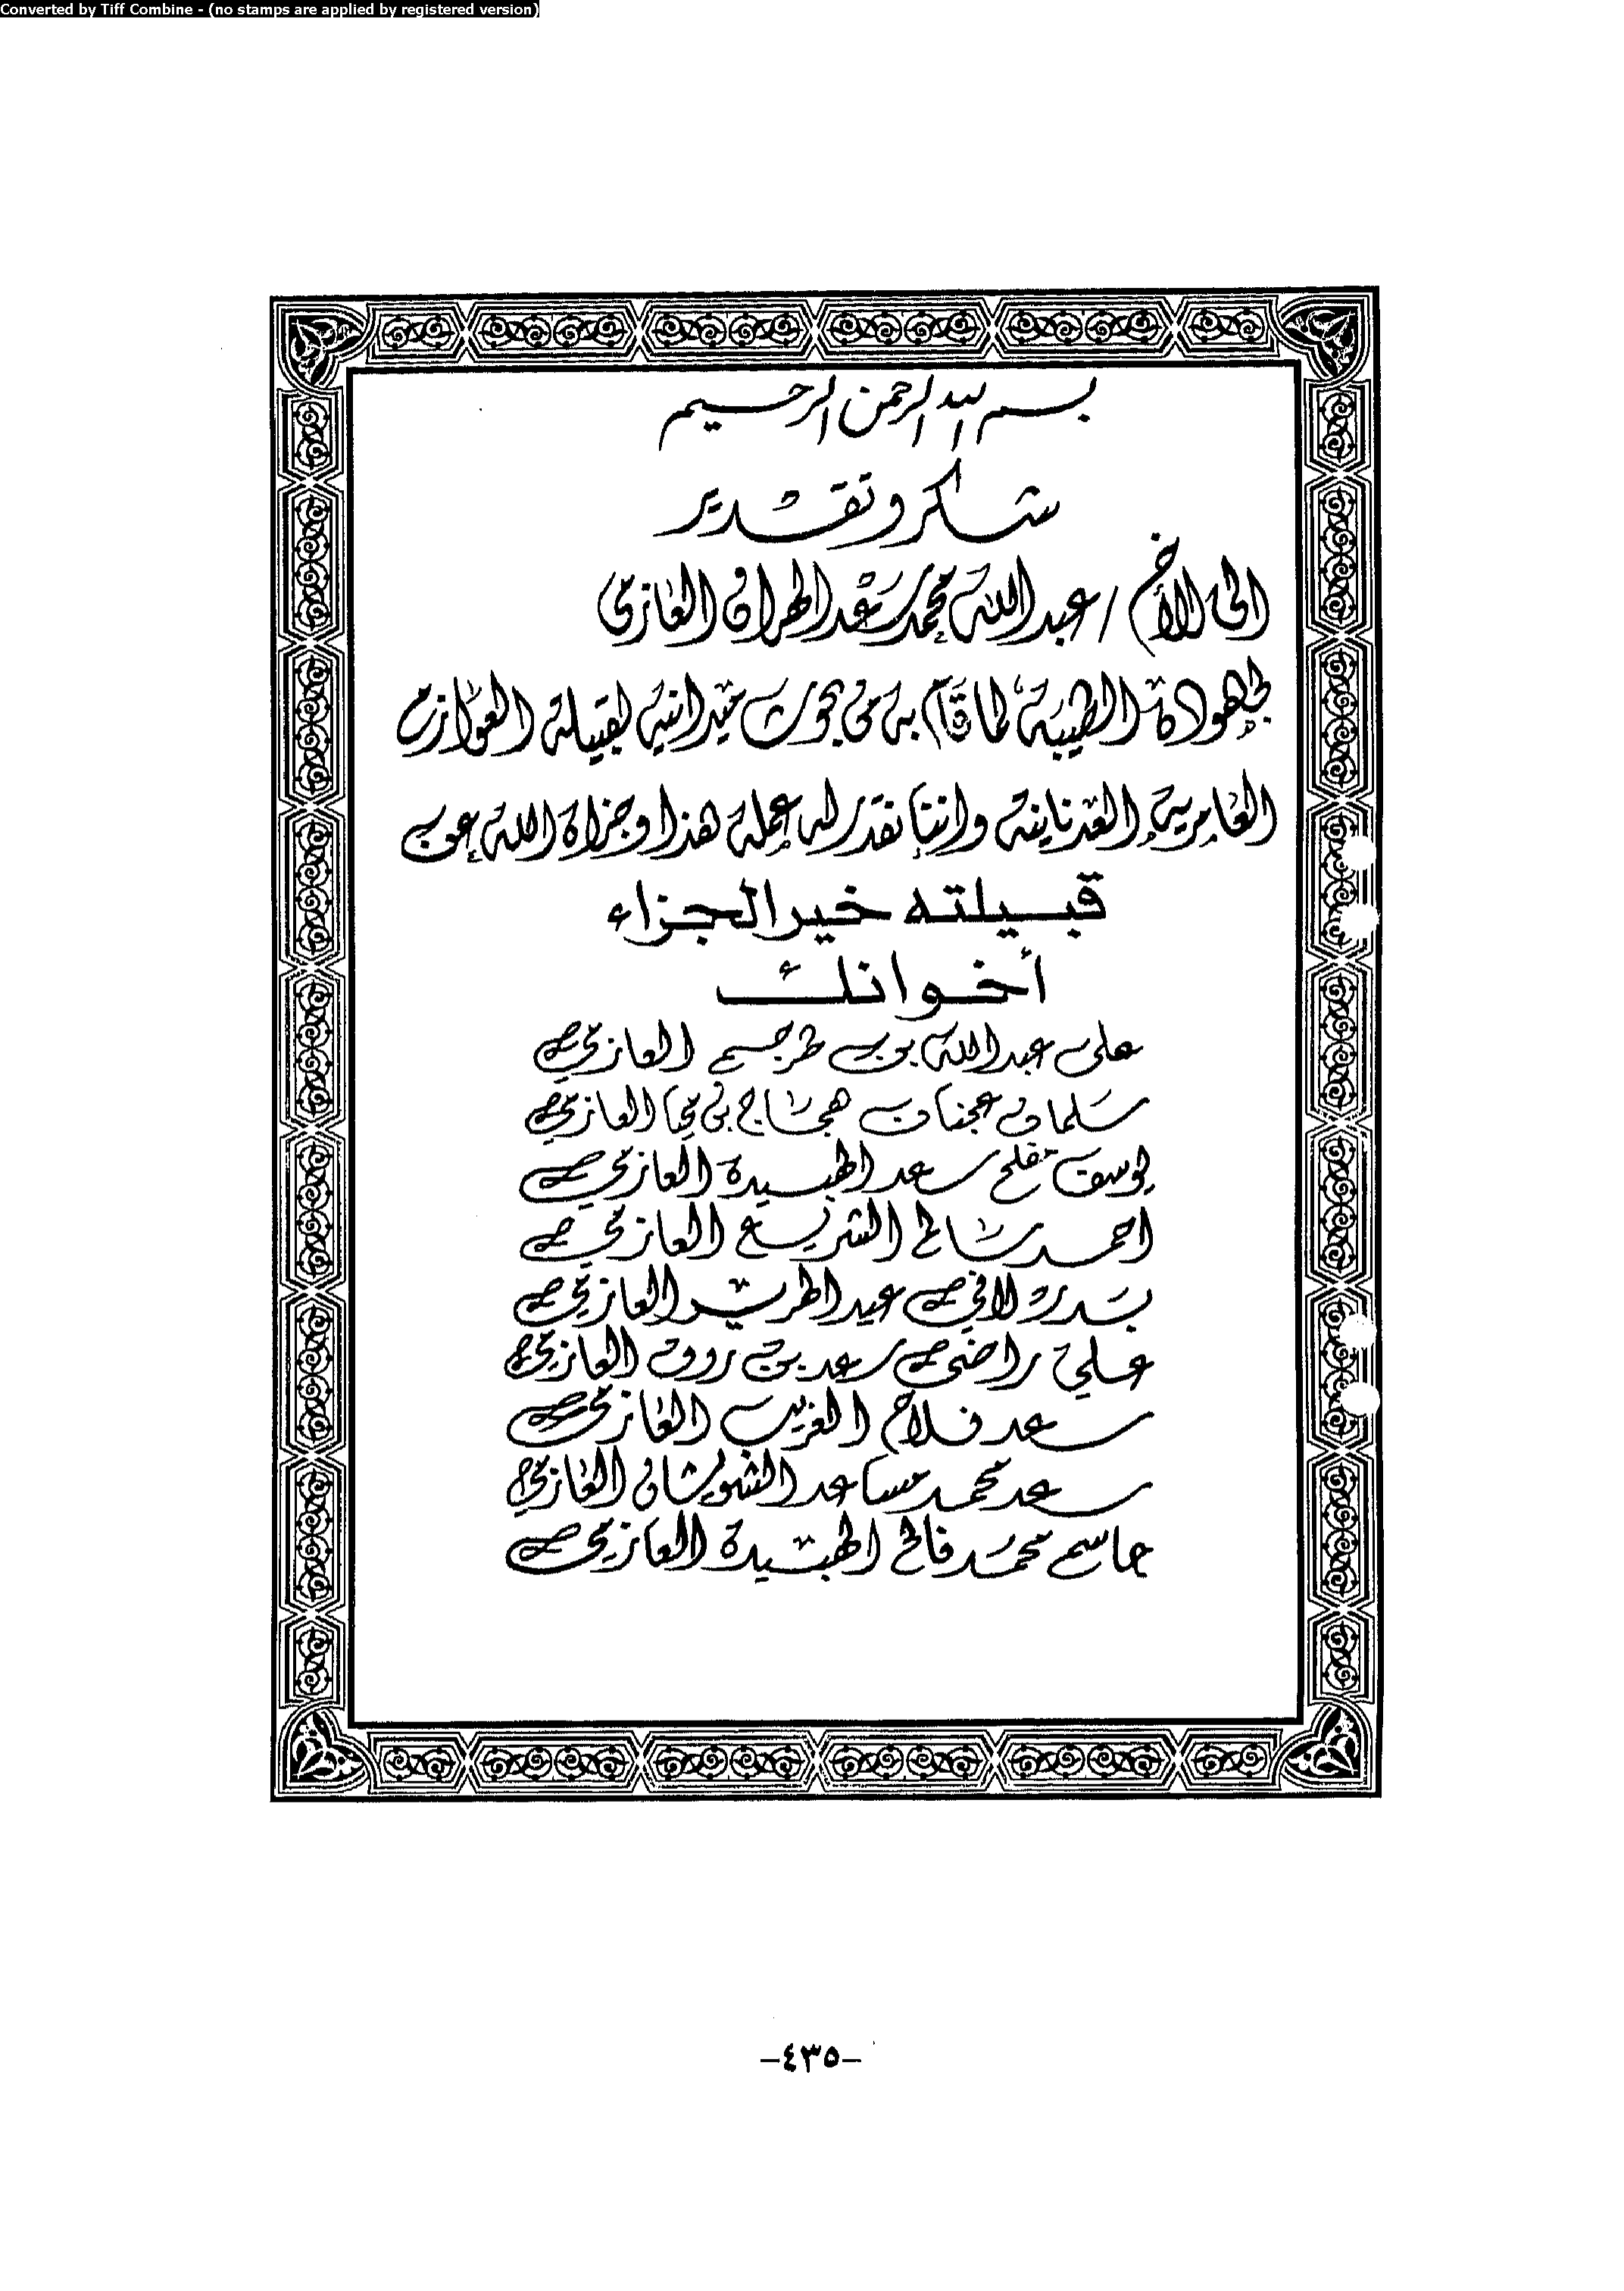 Converted by Tiff Combine - (no stamps are applied by registered version)
بسم الله الرحمن الرحيم
شكر وتقدير
الى الأخ / عبدالله محمد سعد الهران العازمي
لجهوده الطيبة لما قام به من بحوث ميدانية لقبيلة العوازم
العامرية العدنانية واننا نقدر له عمله هذا وجزاه الله عن
قبيلته خير الجزاء
أخوانك
علي عبدالله بن طرجم العازمي
سلمان عجنان هجاج بن محيا العازمي
يوسف مفلح سعد الهبيدة العازمي
احمد شالح الشريع العازمي
بدر لافي عيد العازمي
علي راضي سعد بن روق العازمي
سعد فلاح الغريب العازمي
سعد محمد مساعد الشويشان العازمي
جاسم محمد فالح الهبيدة العازمي
-٤٣٥-